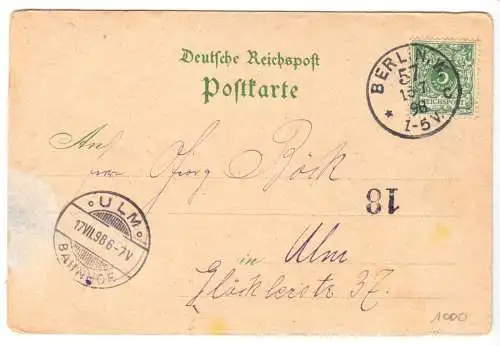 Deutsche Reichspost
Postkarte
BERLIN, W.
57
5
REICHSPOST
98
1-5 V.
An
Georg Böck
18
ULM
17 VII. 98 6-7 V
BAHNHOF
in Ulm
Glöcklerstr 37.
1000